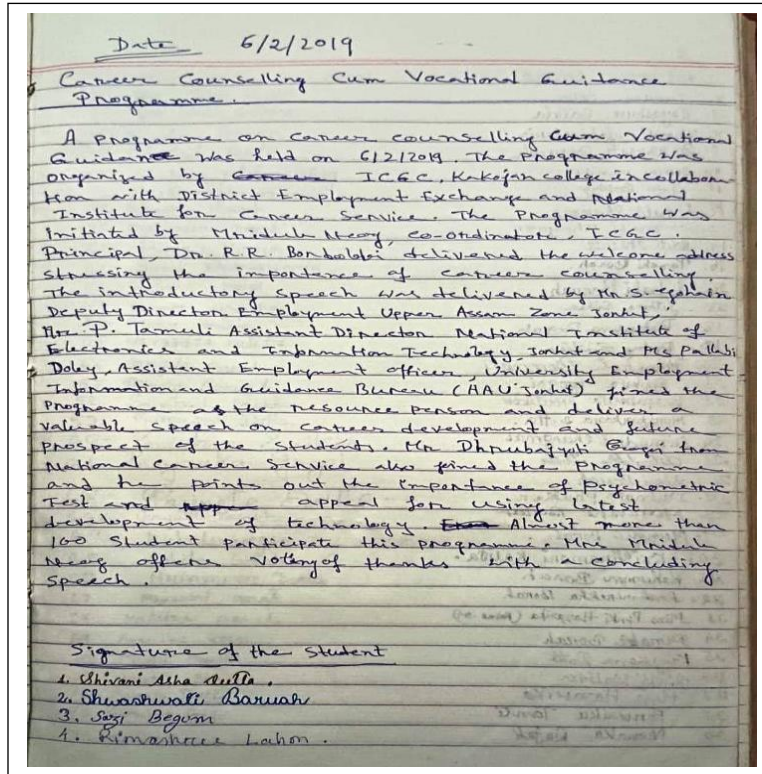 Date 6/2/2019
Career Counselling Cum Vocational Guidance
Programme.
A Programme on Career counselling Cum Vocational
Guidance was held on 6/2/2019. The Programme was
organized by ICGC, Kakojan college in collabora-
tion with District Employment Exchange and National
Institute for Career Service. The Programme was
initiated by Mridul Neog, co-ordinator, ICGC.
Principal, Dr. R.R. Borboloi delivered the welcome address
strussing the importance of carieer counselling.
The introductory speech was delivered by Mr S. Gohain
Deputy Director Employment Upper Assam Zone Jorhat,
Mr. P. Tamuli Assistant Director National Institute of
Electronics and Information Technology, Jorhat and Ms Pallabi
Doley, Assistent Employment officer, University Employment
Information and Guidance Bureau (HAU Jorhat) joined the
Programme as the resource person and deliver a
valuable speech on carieer development and future
prospect of the students. Mr Dhrubajyoti Gogoi from
National Career Service also joined the Programme
and he points out the importance of Psychometric
Test and appeal for using latest
development of technology. Almost more than
100 Student participate this programme. Mr. Mridul
Neog offers Voting of thanks with a concluding
Speech.
Signature of the Student
1. Shivani Asha Dutta.
2. Shwashwati Baruah
3. Sozi Begum
4. Rimashree Lahon.